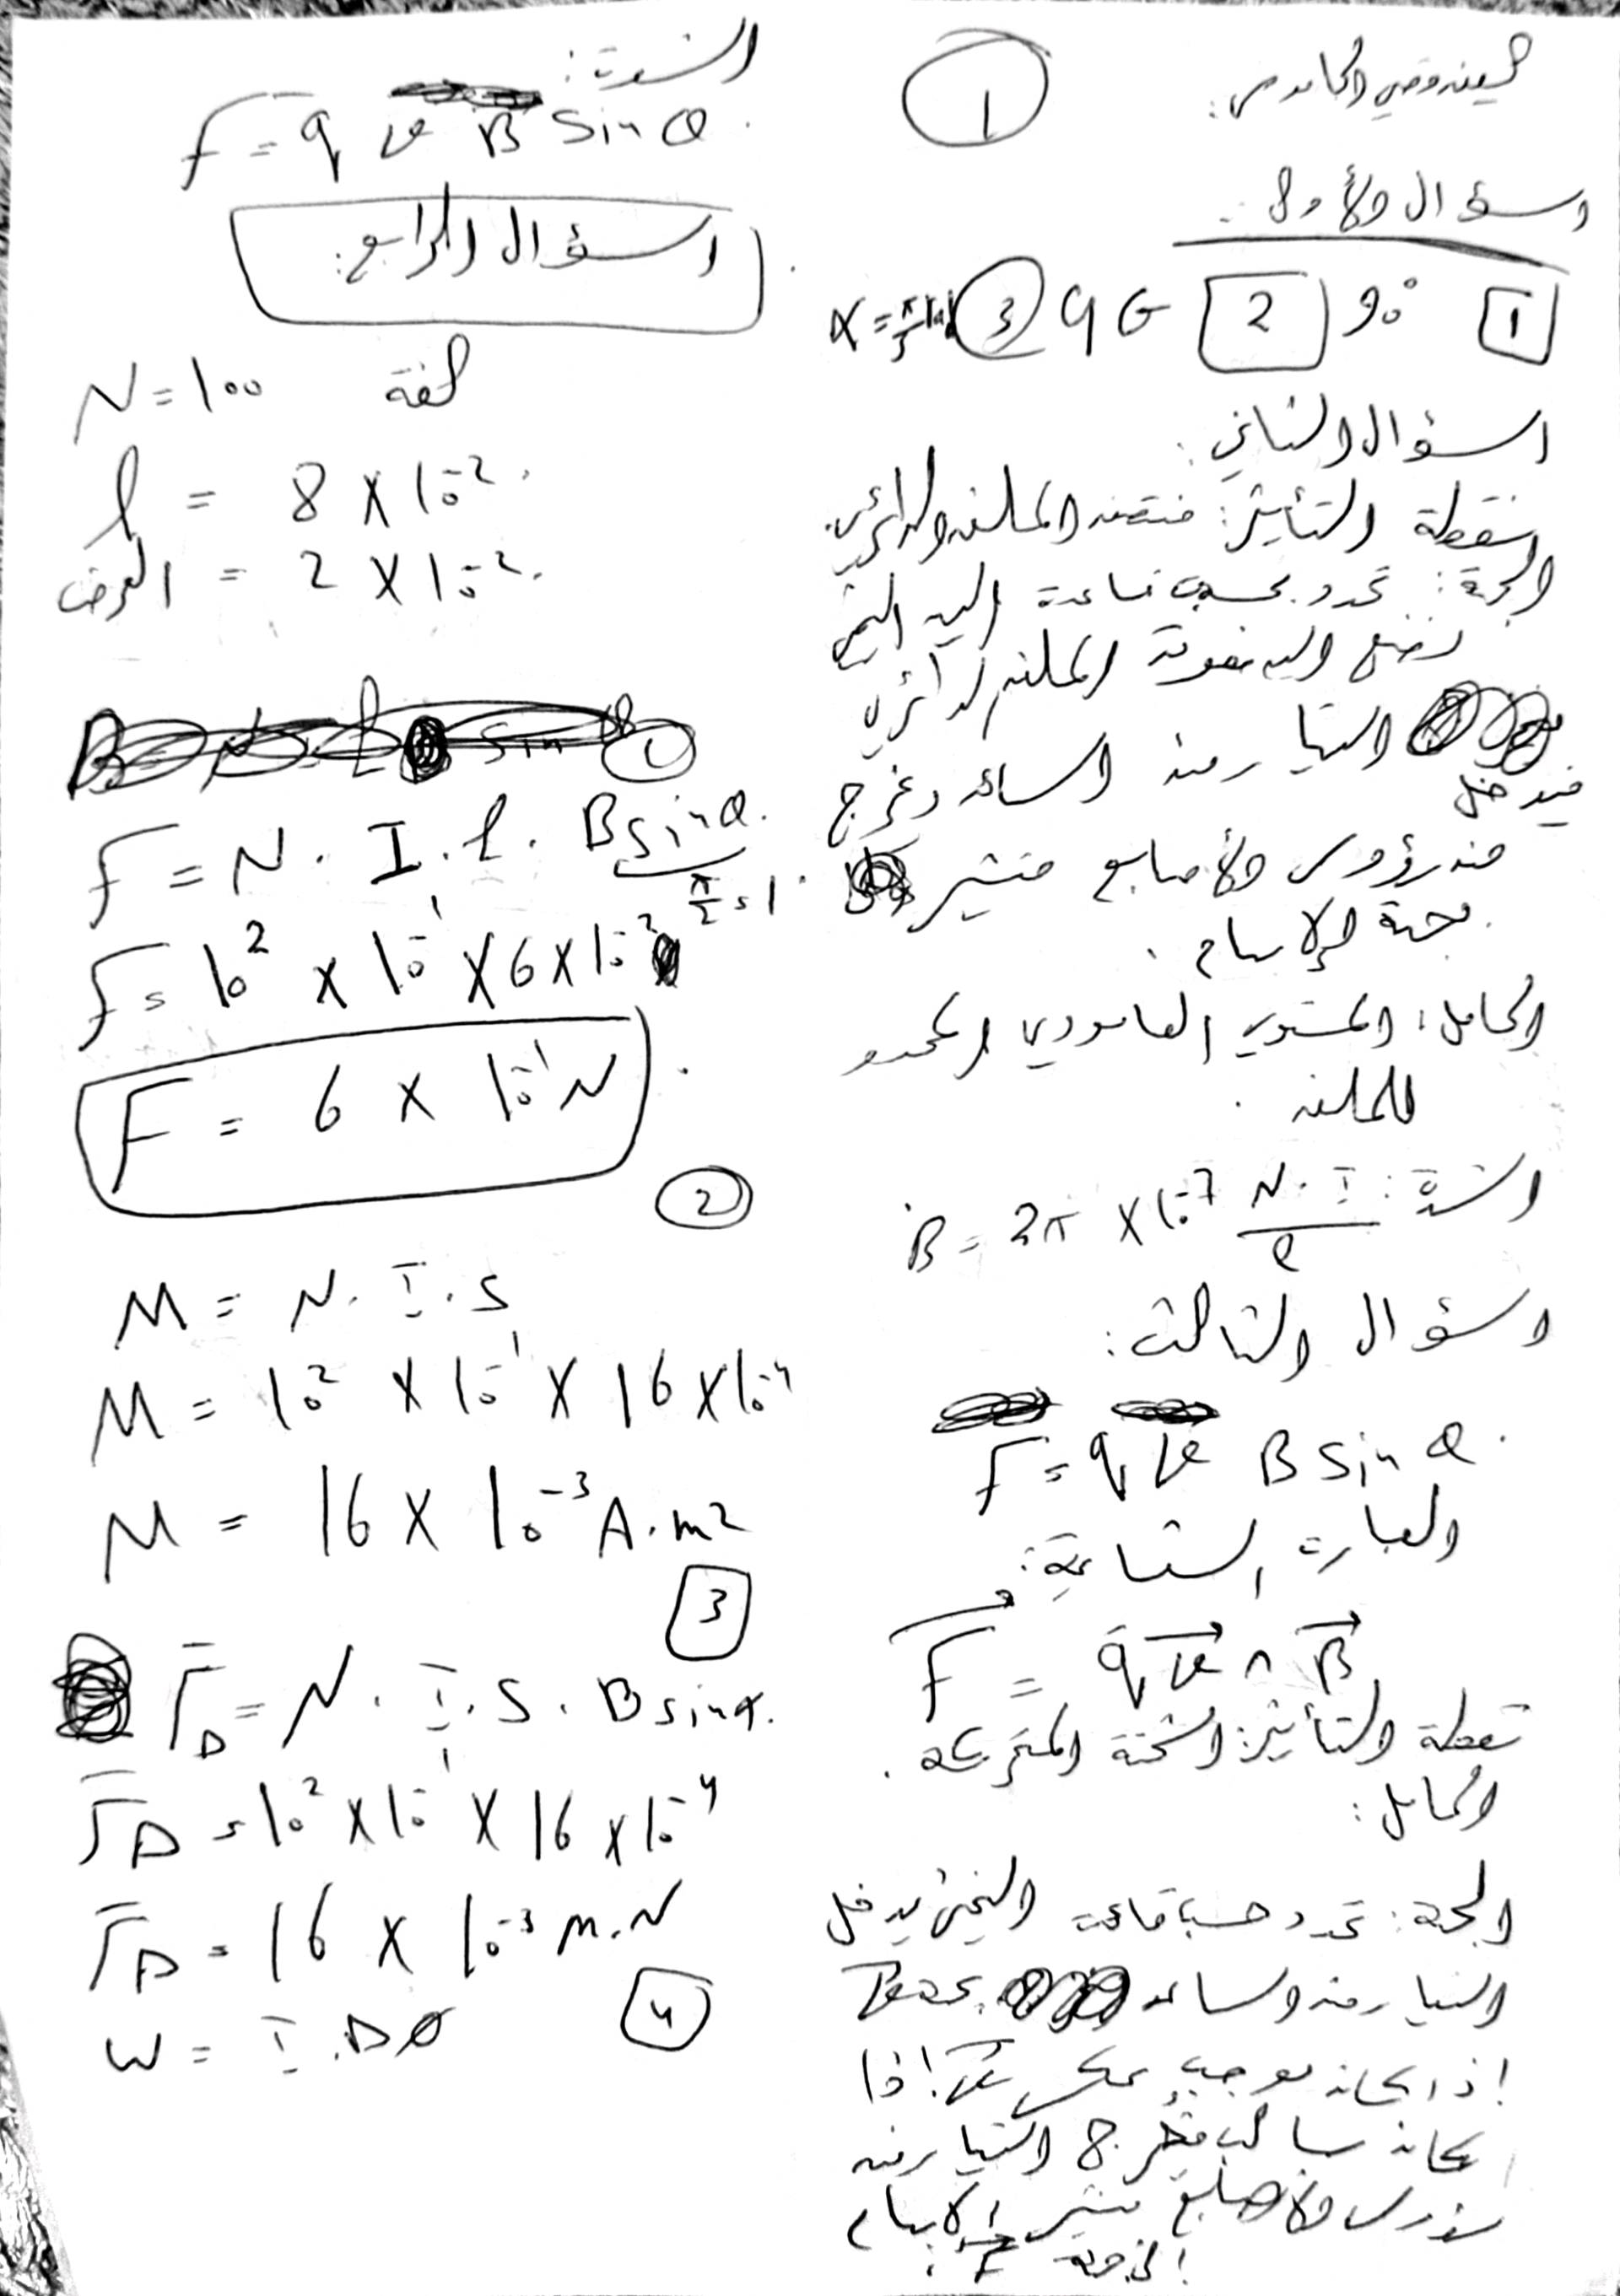 1
السؤال الأول:
1 90° 2 G 9 3
السؤال الثاني:
نقطة التأثير: منتصف الملف الدائري.
الجهة: تحدد بحسب قاعدة اليد اليمنى
نضع اليد فوق الملف الدائري
فيدخل التيار من الساعد ويخرج
من رؤوس الأصابع فتشير
جهة الإبهام.
الحامل: المستوي العامودي
للملف.
الشدة: B = 2π × 10⁻⁷ N.I / r
السؤال الثالث:
F = q v B sin θ.
العبارة الشعاعية:
F⃗ = q v⃗ ∧ B⃗
نقطة التأثير: الشحنة المتحركة.
الحامل:
الجهة: تحدد حسب قاعدة اليمنى يدخل
التيار من الساعد بجهة v⃗
إذا كان موجب عكس v⃗ إذا
كان سالب يخرج التيار من
رؤوس الأصابع فتشير الإبهام
لجهة F⃗.
الشدة:
F = q v B sin θ.
السؤال الرابع:
N = 100 لفة
l = 8 × 10⁻².
العرض = 2 × 10⁻².
1
F = N. I. l. B sin θ.
π/2 = 1
F = 10² × 10⁻¹ × 6 × 10⁻²
F = 6 × 10⁻¹ N
2
M = N. I. S
M = 10² × 10⁻¹ × 16 × 10⁻⁴
M = 16 × 10⁻³ A.m2
3
Γ_Δ = N. I. S. B sin α.
Γ_Δ = 10² × 10⁻¹ × 16 × 10⁻⁴
Γ_Δ = 16 × 10⁻³ m.N
4
W = I. Δ∅